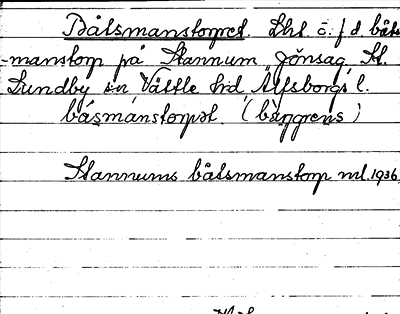 Båtsmanstorpet. Lht ö. f d. båts
-manstorp på Stannum, Jönsag, St.
Lundby sn Vättle hd Älfsborgs l.
båsmánstorpət. (bäggrens)
Stannums båtsmanstorp ml. 1936.